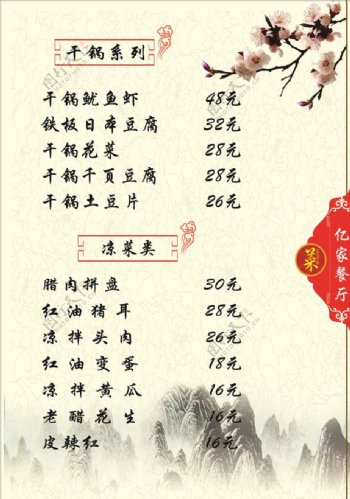 干锅系列
干锅鱿鱼虾 48元
铁板日本豆腐 32元
干锅花菜 28元
干锅千页豆腐 28元
干锅土豆片 26元
凉菜类
腊肉拼盘 30元
红油猪耳 28元
凉拌头肉 26元
红油变蛋 18元
凉拌黄瓜 16元
老醋花生 16元
皮辣红 16元
菜
亿家餐厅